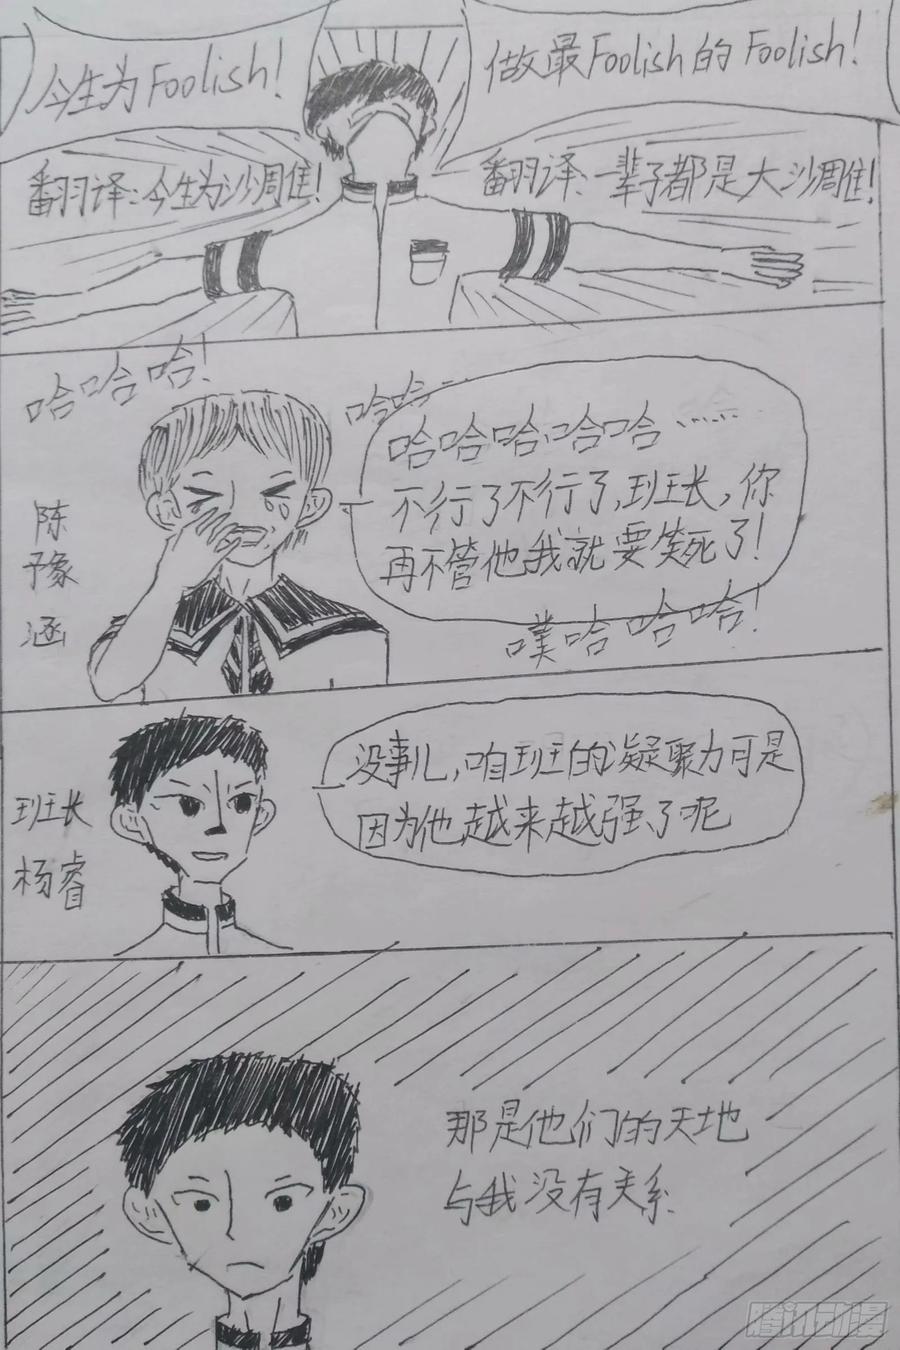 今生为Foolish!
做最Foolish的Foolish!
翻译:今生为沙周隹!
翻译:一辈子都是大沙周隹!
哈哈哈!
哈哈
哈哈哈哈哈……
不行了不行了,班长,你
再不管他我就要笑死了!
噗哈哈哈!
陈
予象
涵
没事儿,咱班的凝聚力可是
因为他越来越强了呢
班长
杨睿
那是他们的天地
与我没有关系
腾讯动漫